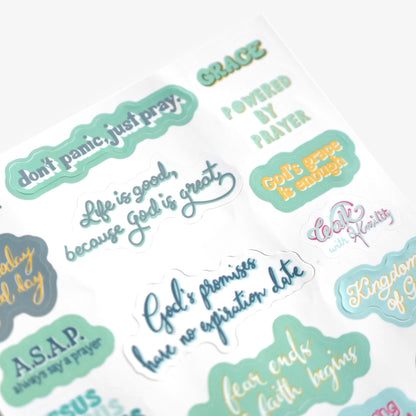 GRACE
don't panic, just pray.
POWERED
BY
PRAYER
Life is good,
because God is great
God's grace
is enough
walk
with Humility
God's promises
have no expiration date
A.S.A.P.
always say a prayer
fear ends
faith begins